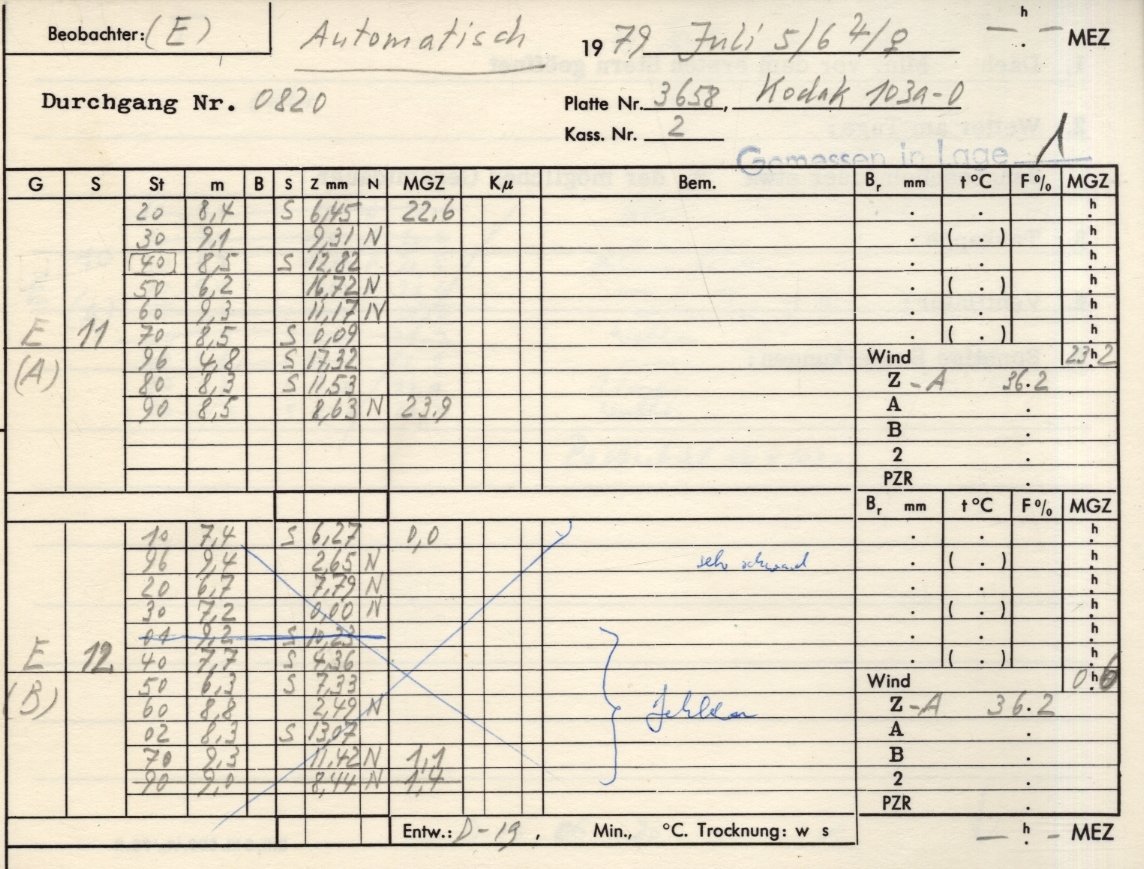 Beobachter: (E) Automatisch 1979 Juli 5/6 ♃/♀ — h . — MEZ
Durchgang Nr. 0820 Platte Nr. 3658, Kodak 103a-O
Kass. Nr. 2
Gemessen in Lage 1
G S St m B S Z mm N MGZ Kμ Bem. Br mm t °C F % MGZ
20 8,4 S 6,45 22,6 . . h
30 9,1 9,31 N . ( . ) h
40 8,5 S 12,82 . . h
50 6,2 16,72 N . ( . ) h
60 9,3 11,17 N . . h
E 11 70 8,5 S 0,09 . ( . ) h
(A) 96 4,8 S 17,32 Wind 23h2
80 8,3 S 11,53 Z -A 36.2
90 8,5 8,63 N 23,9 A .
B .
2 .
PZR .
Br mm t °C F % MGZ
10 7,4 S 6,27 0,0 . . h
96 9,4 2,65 N sehr schwach . ( . ) h
20 6,7 7,79 N . . h
30 7,2 0,00 N . ( . ) h
01 9,2 S 10,23 . . h
E 12 40 7,7 S 4,36 . ( . ) h
(B) 50 6,3 S 7,33 Wind 0h6
60 8,8 2,49 N fehlen Z -A 36.2
02 8,3 S 13,07 A .
70 9,3 11,42 N 1,1 B .
90 9,0 8,44 N 1,4 2 .
PZR .
Entw.: D-19, Min., °C. Trocknung: w s — h . — MEZ